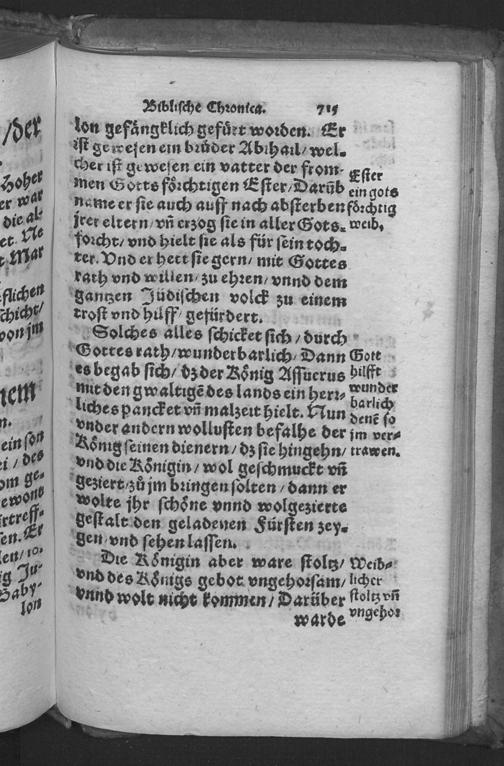 /der
Hoher
er war
die al-
et. Ne
t Mar
flichen
schicht/
von jm
nem
n.
ein son
ei / des
om ge-
ewont
irtreff-
en. Er
len/ 10.
ig Ju-
Baby-
lon
Biblische Chronica. 715
lon gefängklich gefürt worden. Er
ist gewesen ein brůder Abihail/ wel-
cher ist gewesen ein vatter der from-
men Gotts förchtigen Ester/ Darüb
name er sie auch auff nach absterben
jrer eltern/ vñ erzog sie in aller Gots-
forcht/ vnd hielt sie als für sein toch-
ter. Vnd er hett sie gern/ mit Gottes
rath vnd willen/ zu ehren/ vnnd dem
gantzen Jüdischen volck zu einem
trost vnd hilff/ gefürdert.
Solches alles schicket sich/ durch
Gottes rath/ wunderbarlich/ Dann
es begab sich/ dz der König Assuerus
mit den gwaltigē des lands ein herr-
liches pancket vñ malzeit hielt. Nun
vnder andern wollusten befalhe der
König seinen dienern/ dz sie hingehn/
vnd die Königin/ wol geschmuckt vñ
geziert/ zů jm bringen solten/ dann er
wolte jhr schöne vnnd wolgezierte
gestalt den geladenen Fürsten zey-
gen vnd sehen lassen.
Die Königin aber ware stoltz/
vnd des Königs gebot vngehorsam/
vnnd wolt nicht kommen/ Darüber
warde
Ester
ein gots
förchtig
weib.
Gott
hilfft
wunder
barlich
denē so
jm ver-
trawen.
Weib-
licher
stoltz vñ
vngehor